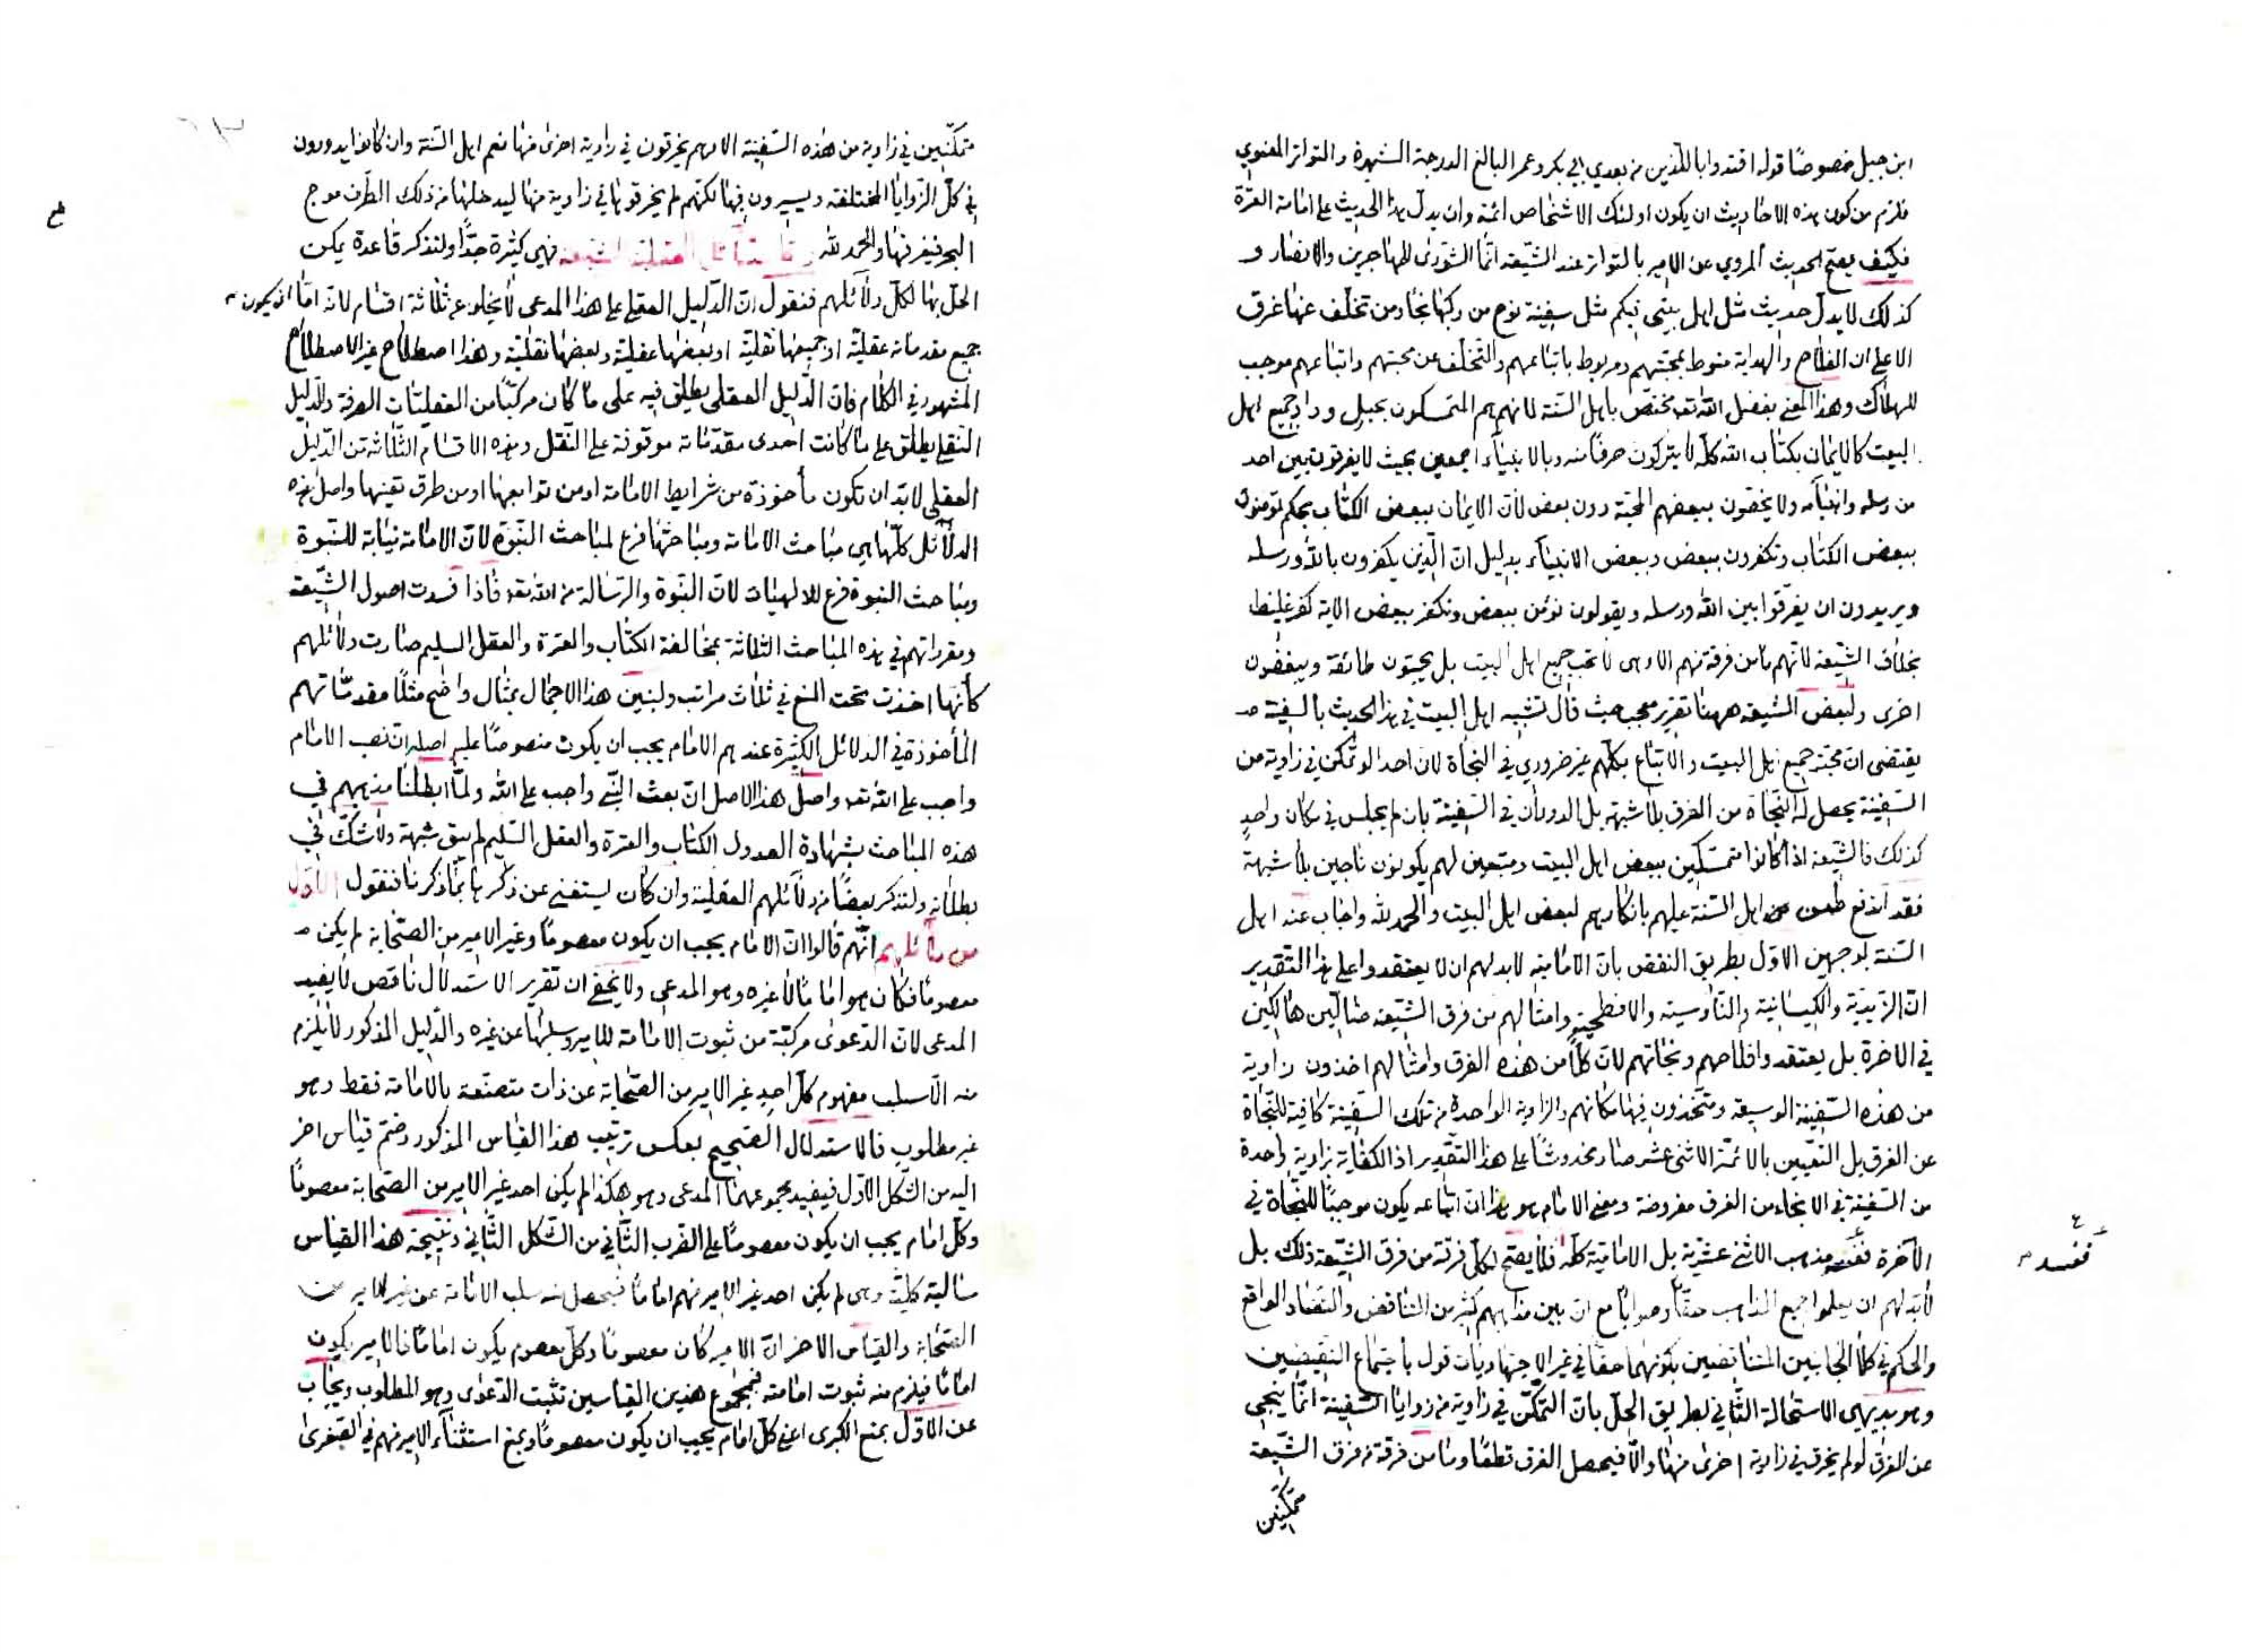 ابن جبل خصوصًا قوله اقتدوا باللذين من بعدي ابي بكر وعمر البالغ الدرجة الشهرة والتواتر المعنوي
فلزم من كون هذه الاحاديث ان يكون اولئك الاشخاص ائمة وان يدل هذا الحديث على امامة العترة
فكيف يصح الحديث المروي عن الامير بالتواتر عند الشيعة انما الشورى للمهاجرين والانصار و
كذلك لا يدل حديث مثل اهل بيتي فيكم مثل سفينة نوح من ركبها نجا ومن تخلف عنها غرق
الا على ان الفلاح والهداية منوط بمحبتهم ومربوط باتباعهم والتخلف عن محبتهم واتباعهم موجب
للهلاك وهذا المعنى بفضل الله تعه مختص باهل السنة لانهم هم المتمسكون بحبل وداد جميع اهل
البيت كالايمان بكتاب الله كله لا يتركون حرفًا منه وبالانبياء اجمعين بحيث لا يفرقون بين احد
من رسله وانبيائه ولا يخصون ببعضهم المحبة دون بعض لان الايمان ببعض الكتاب بحكم تؤمنون
ببعض الكتاب وتكفرون ببعض وببعض الانبياء بدليل ان الذين يكفرون بالله ورسله
ويريدون ان يفرقوا بين الله ورسله ويقولون نؤمن ببعض ونكفر ببعض الاية كفر غليظ
بخلاف الشيعة لانهم ما من فرقة منهم الا وهي لا تحب جميع اهل البيت بل يحبون طائفة ويبغضون
اخرى ولبعض الشيعة ههنا تقرير عجيب حيث قال تشبيه اهل البيت في هذا الحديث بالسفينة
يقتضى ان محبة جميع اهل البيت والاتباع بكلهم غير ضروري في النجاة لان احدا لو تمكن في زاوية من
السفينة يحصل له النجاة من الغرق بلا شبهة بل الدوران في السفينة بان لم يجلس في مكان واحدٍ
كذلك فالشيعة اذا كانوا متمسكين ببعض اهل البيت ومتبعين لهم يكونون ناجين بلا شبهة
فقد اندفع طعن اهل السنة عليهم بانكارهم لبعض اهل البيت والحمد لله واجاب عنه اهل
السنة بوجهين الاول بطريق النقض بان الامامية لا بد لهم ان لا يعتقدوا على هذا التقدير
ان الزيدية والكيسانية والناوسية والافطحية وامثالهم من فرق الشيعة ضالين هالكين
في الاخرة بل يعتقدوا فلاحهم ونجاتهم لان كلًا من هذه الفرق وامثالهم اخذون زاوية
من هذه السفينة الوسيعة ومتخذون فيها مكانهم والزاوية الواحدة من تلك السفينة كافية للنجاة
عن الغرق بل التعيين بالائمة الاثنى عشر صار مخدوشًا على هذا التقدير اذ الكفاية بزاوية واحدة
من السفينة في الانجاء من الغرق مفروضة ومعنى الامام هو هذا ان اتباعه يكون موجبًا للنجاة في
الآخرة ففسد مذهب الاثنى عشرية بل الامامية كله فلا يصح لكل فرقة من فرق الشيعة ذلك بل
لا بد لهم ان يعلموا جميع المذاهب حقا وصوابا مع ان بين مذاهبهم كثير من التناقض والتضاد الواقع
والحكم في كلا الجانبين المتناقضين بكونهما حقا في غير الاجتهاديات قول باجتماع النقيضين
وهو بديهى الاستحالة الثاني بطريق الحل بان التمكن في زاوية من زوايا السفينة انما ينجى
عن الغرق لو لم يخرق في زاوية اخرى منها والا فيحصل الغرق قطعًا وما من فرقة من فرق الشيعة
متمكنين
ففسد
متمكنين في زاوية من هذه السفينة الا وهم يخرقون في زاوية اخرى منها نعم اهل السنة وان كانوا يدورون
في كل الزوايا المختلفة ويسيرون فيها لكنهم لم يخرقوها في زاوية منها ليدخلها من ذلك الطرف موج
البحر فيغرقها والحمد لله فهي كثيرة جدًا ولنذكر قاعدة يمكن
الحل بها لكل دلائلهم فنقول ان الدليل العقلى على هذا المدعى لا يخلو عن ثلاثة اقسام لانه اما ان يكون
جميع مقدماته عقلية او جميعها نقلية او بعضها عقلية وبعضها نقلية وهذا اصطلاح غير الاصطلاح
المشهور في الكلام فان الدليل العقلى يطلق فيه على ما كان مركبًا من العقليات الصرفة والدليل
النقلى يطلق على ما كانت احدى مقدماته موقوفة على النقل وهذه الاقسام الثلاثة من الدليل
العقلى لا بد ان تكون مأخوذة من شرايط الامامة او من توابعها او من طرق تعينها واصل هذه
الدلائل كلها هي مباحث الامامة ومباحثها فرع لمباحث النبوة لان الامامة نيابة للنبوة
ومباحث النبوة فرع للالهيات لان النبوة والرسالة من الله تعه فاذا فسدت اصول الشيعة
ومقرراتهم في هذه المباحث الثلاثة بمخالفة الكتاب والعترة والعقل السليم صارت دلائلهم
كأنها اخذت تحت المنع في ثلاث مراتب ولنبين هذا الاجمال بمثال واضح مثلًا مقدماتهم
المأخوذة في الدلائل الكثيرة عندهم الامام يجب ان يكون منصوصًا عليه اصله ان نصب الامام
واجب على الله تعه واصل هذا الاصل ان بعث النبي واجب على الله ولما ابطلنا مذهبهم في
هذه المباحث بشهادة العدول الكتاب والعترة والعقل السليم لم يبق شبهة ولا شك في
بطلانه ولنذكر بعضًا من دلائلهم العقلية وان كان يستغنى عن ذكرها بما ذكرنا فنقول الاول
من دلائلهم انهم قالوا ان الامام يجب ان يكون معصومًا وغير الامير من الصحابة لم يكن
معصومًا فكان هو اماما لا غيره وهو المدعى ولا يخفى ان تقرير الاستدلال ناقص لا يفيد
المدعى لان الدعوى مركبة من ثبوت الامامة للامير وسلبها عن غيره والدليل المذكور لا يلزم
منه الا سلب مفهوم كل احد غير الامير من الصحابة عن ذات متصفة بالامامة فقط وهو
غير مطلوب فالاستدلال الصحيح بعكس ترتيب هذا القياس المذكور وضم قياس اخر
اليه من الشكل الاول فيفيد مجموعهما المدعى وهو هكذا لم يكن احد غير الامير من الصحابة معصومًا
وكل امام يجب ان يكون معصومًا على الضرب الثاني من الشكل الثاني ونتيجة هذا القياس
سالبة كلية وهى لم يكن احد غير الامير منهم امامًا فيحصل منه سلب الامامة عن غير الامير من
الصحابة والقياس الاخر ان الامير كان معصومًا وكل معصوم يكون امامًا فالامير يكون
امامًا فيلزم منه ثبوت امامته فبمجموع هذين القياسين تثبت الدعوى وهو المطلوب ويجاب
عن الاول بمنع الكبرى اعنى كل امام يجب ان يكون معصومًا وبمنع استثناء الامير منهم في الصغرى